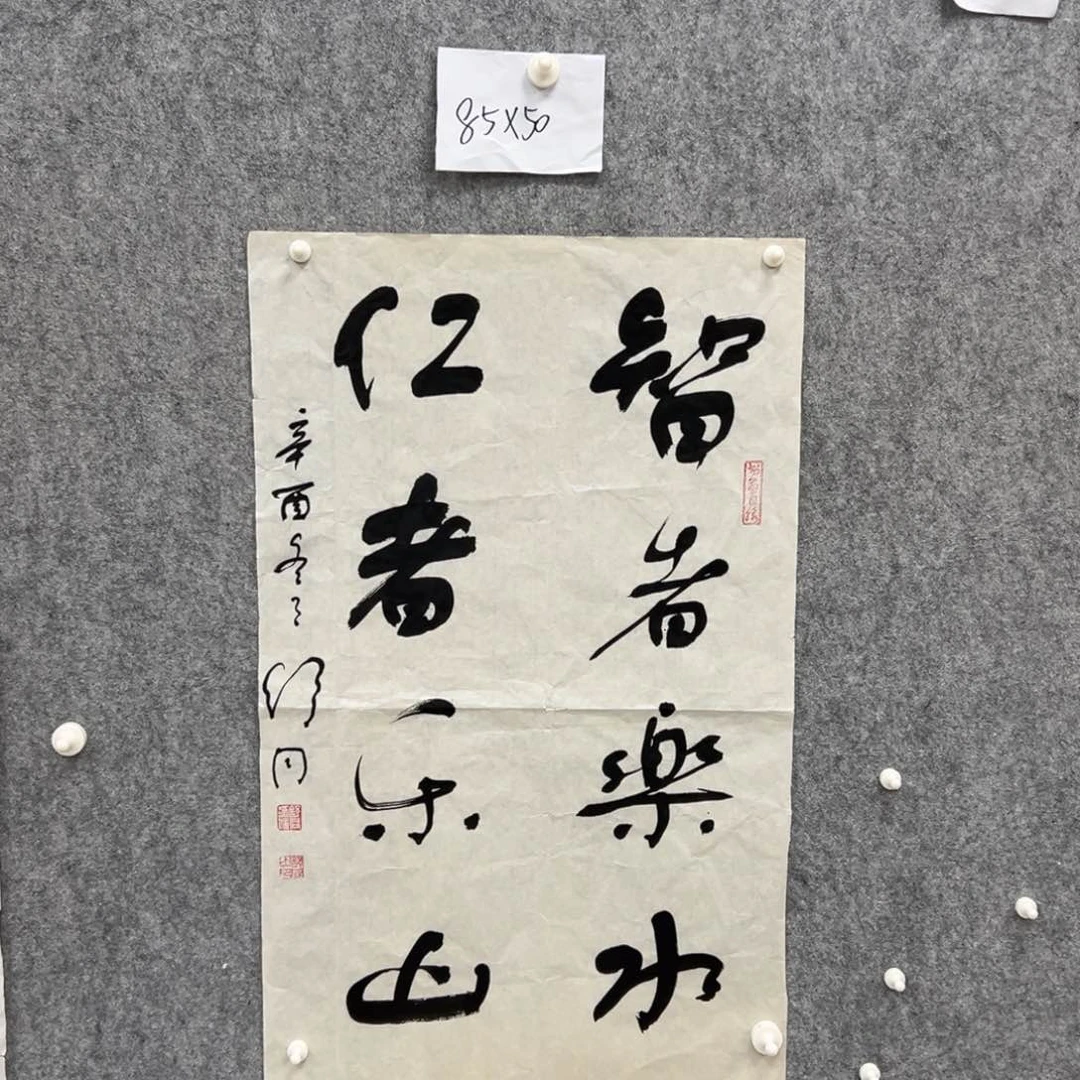 85X50
智者樂水
仁者乐山
辛酉冬日
舒同